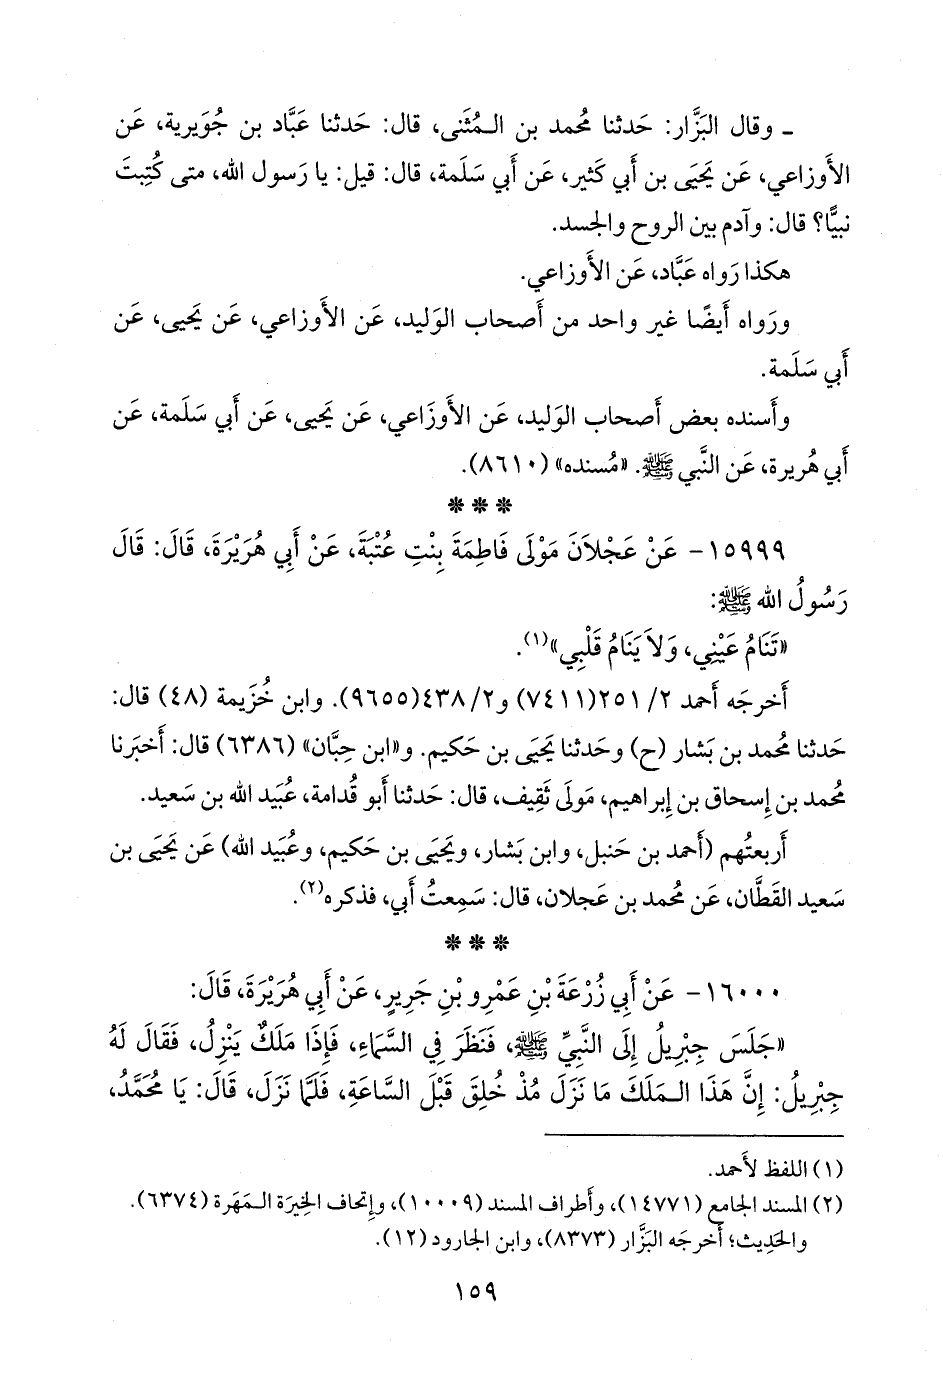 ـ وقال البَزَّار: حَدثنا مُحمد بن الـمُثَنى، قال: حَدثنا عَبَّاد بن جُوَيرية، عَن
الأَوزاعي، عَن يَحيَى بن أَبي كَثير، عَن أَبي سَلَمة، قال: قيل: يا رَسول الله، متى كُتِبتَ
نبيًّا؟ قال: وآدم بين الروح والجسد.
هكذا رَواه عَبَّاد، عَن الأَوزاعي.
ورَواه أَيضًا غير واحد من أَصحاب الوَليد، عَن الأَوزاعي، عَن يَحيى، عَن
أَبي سَلَمة.
وأَسنده بعض أَصحاب الوَليد، عَن الأَوزَاعي، عَن يَحيى، عَن أَبي سَلَمة، عَن
أَبي هُريرة، عَن النَّبي ﷺ. «مُسنده» (٨٦١٠).
* * *
١٥٩٩٩- عَنْ عَجْلاَنَ مَوْلَى فَاطِمَةَ بِنْتِ عُتْبَةَ، عَنْ أَبِي هُرَيْرَةَ، قَالَ: قَالَ
رَسُولُ الله ﷺ:
«تَنَامُ عَيْنِي، وَلاَ يَنَامُ قَلْبِي»(١).
أَخرجَه أَحمد ٢/ ٢٥١(٧٤١١) و٢/ ٤٣٨(٩٦٥٥). وابن خُزَيمة (٤٨) قال:
حَدثنا مُحمد بن بَشار (ح) وحَدثنا يَحيَى بن حَكيم. و«ابن حِبَّان» (٦٣٨٦) قال: أَخبَرنا
مُحمد بن إِسحاق بن إِبراهيم، مَولَى ثَقِيف، قال: حَدثنا أَبو قُدامة، عُبَيد الله بن سَعيد.
أَربعتُهم (أَحمد بن حَنبل، وابن بَشار، ويَحيَى بن حَكيم، وعُبَيد الله) عَن يَحيَى بن
سَعيد القَطَّان، عَن مُحمد بن عَجلان، قال: سَمِعتُ أَبي، فذكره(٢).
* * *
١٦٠٠٠- عَنْ أَبِي زُرْعَةَ بْنِ عَمْرِو بْنِ جَرِيرٍ، عَنْ أَبِي هُرَيْرَةَ، قَالَ:
«جَلَسَ جِبْرِيلُ إِلَى النَّبِيِّ ﷺ، فَنَظَرَ فِي السَّمَاءِ، فَإِذَا مَلَكٌ يَنْزِلُ، فَقَالَ لَهُ
جِبْرِيلُ: إِنَّ هَذَا الـمَلَكَ مَا نَزَلَ مُذْ خُلِقَ قَبْلَ السَّاعَةِ، فَلَمَّا نَزَلَ، قَالَ: يَا مُحَمَّدُ،
(١) اللفظ لأَحمد.
(٢) المسند الجامع (١٤٧٧١)، وأَطراف المسند (١٠٠٠٩)، وإتحاف الخِيرَة الـمَهَرة (٦٣٧٤).
والحَدِيث؛ أَخرجَه البَزَّار (٨٣٧٣)، وابن الجارود (١٢).
١٥٩